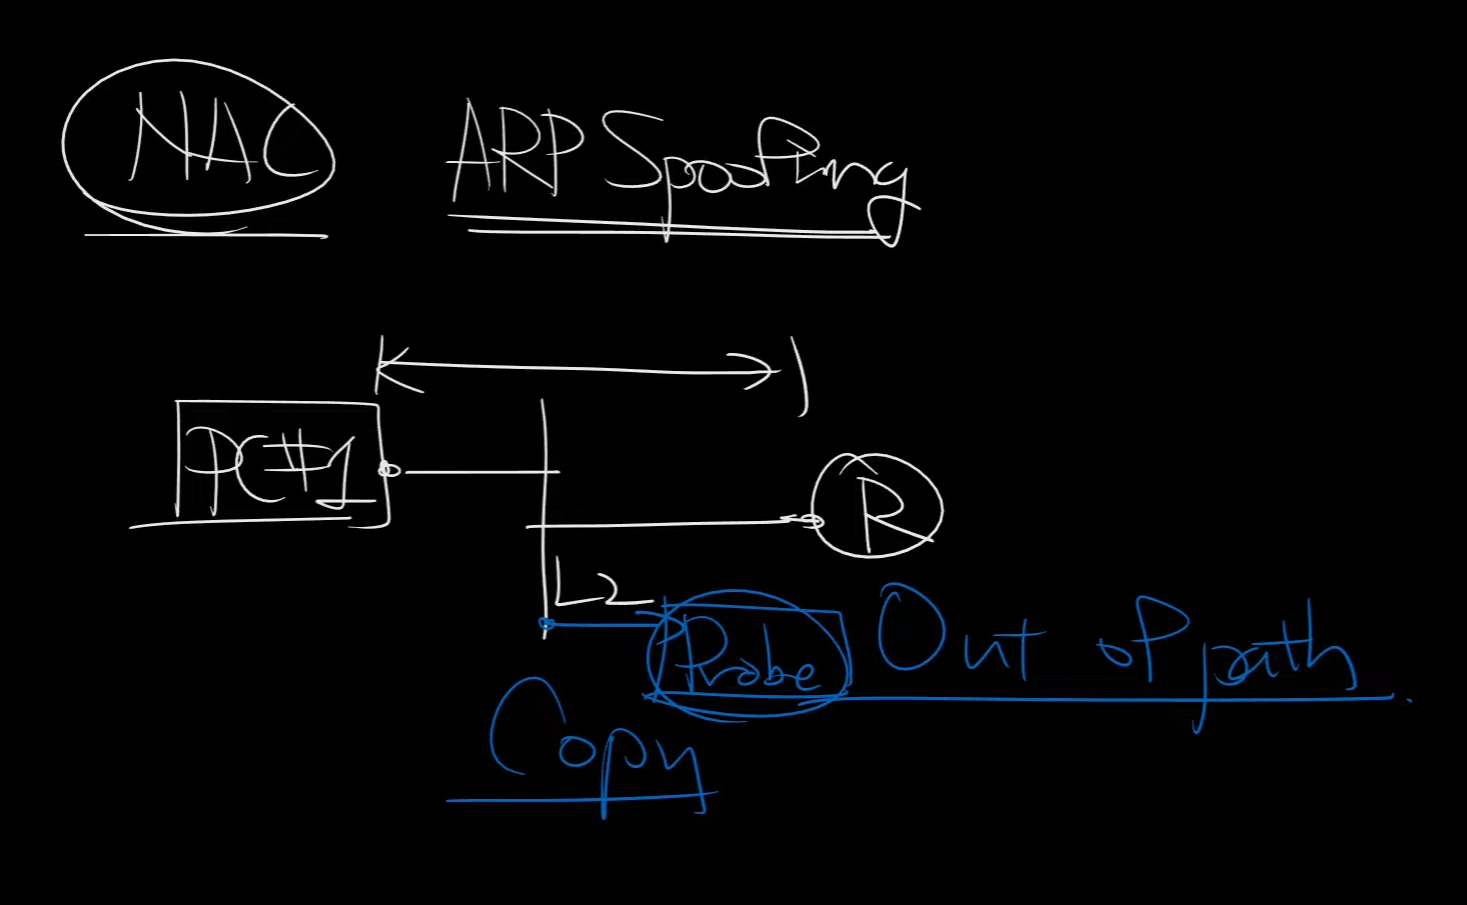 NAC
ARP Spoofing
PC#1
R
L2
Probe
Out of path
Copy